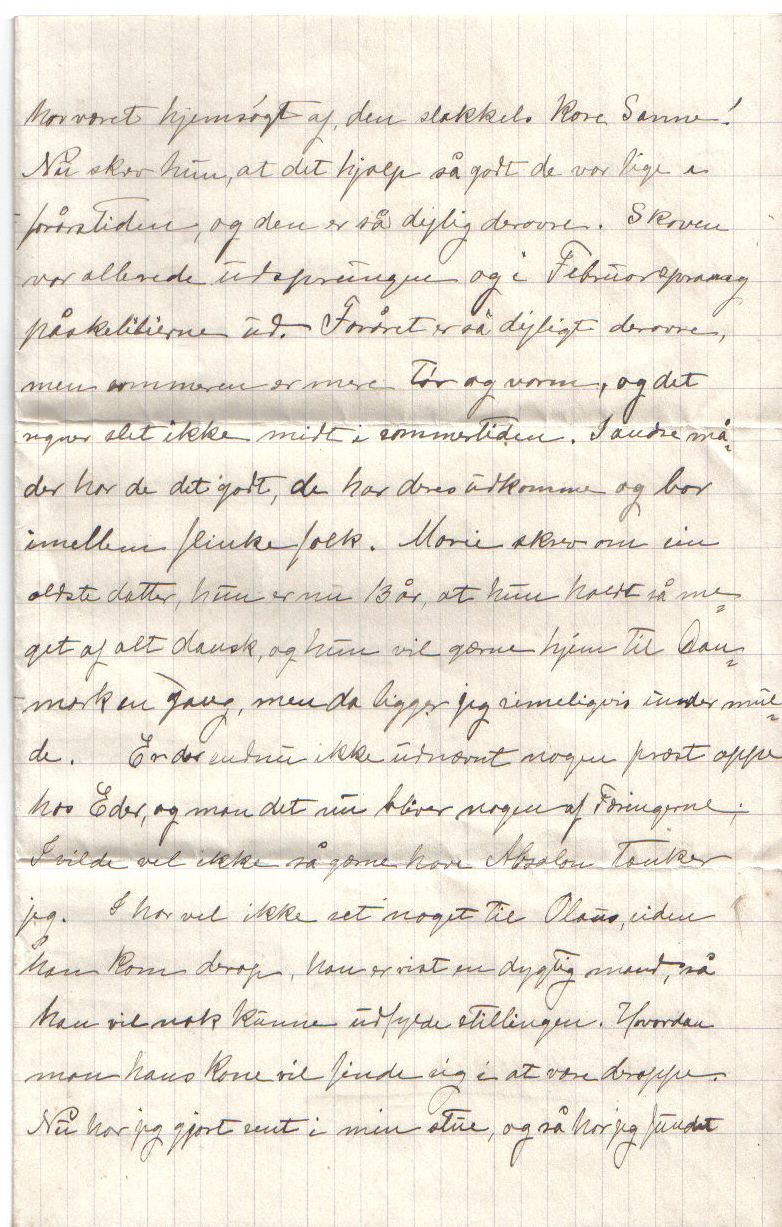 har været hjemsøgt af, den stakkels kære Sanne!
Nu skrev hun, at det hjalp så godt de var lige i
forårstiden, og den er så dejlig derovre. Skoven
var allerede udsprungen og i Februar sprang
påskelilierne ud. Foråret er så dejligt derovre,
men sommeren er mere tør og varm, og det
regner slet ikke midt i sommertiden. I andre må=
der har de det godt, de har deres udkomme og bor
imellem flinke folk. Marie skrev om sin
ældste datter, hun er nu 13 år, at hun holdt så me=
get af alt dansk, og hun vil gærne hjem til Dan=
mark en gang, men da ligger jeg rimeligvis under mul=
de. Er der endnu ikke udnævnt nogen præst oppe
hos Eder, og mon det nu bliver nogen af Færingerne;
I vilde vel ikke så gærne have Absalon tænker
jeg. I har vel ikke set noget til Olaus, siden
han kom derop, han er vist en dygtig mand, så
han vil nok kunne udfylde stillingen. Hvordan
mon hans kone vil finde sig i at være deroppe.
Nu har jeg gjort rent i min stue, og så har jeg fundet